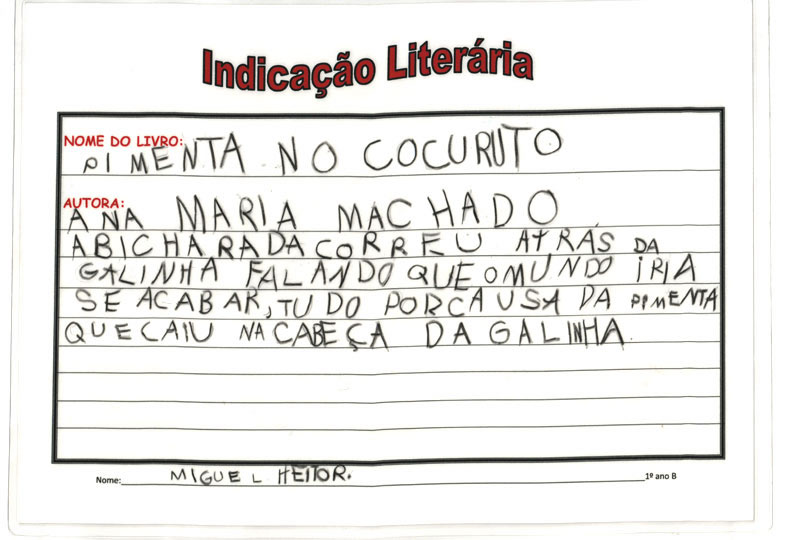 Indicação Literária
NOME DO LIVRO:
PIMENTA NO COCURUTO
AUTORA:
ANA MARIA MACHADO
A BICHARADA CORREU ATRÁS DA
GALINHA FALANDO QUE O MUNDO IRIA
SE ACABAR, TUDO POR CAUSA DA PIMENTA
QUE CAIU NA CABEÇA DA GALINHA.
Nome: MIGUEL HEITOR. 1º ano B